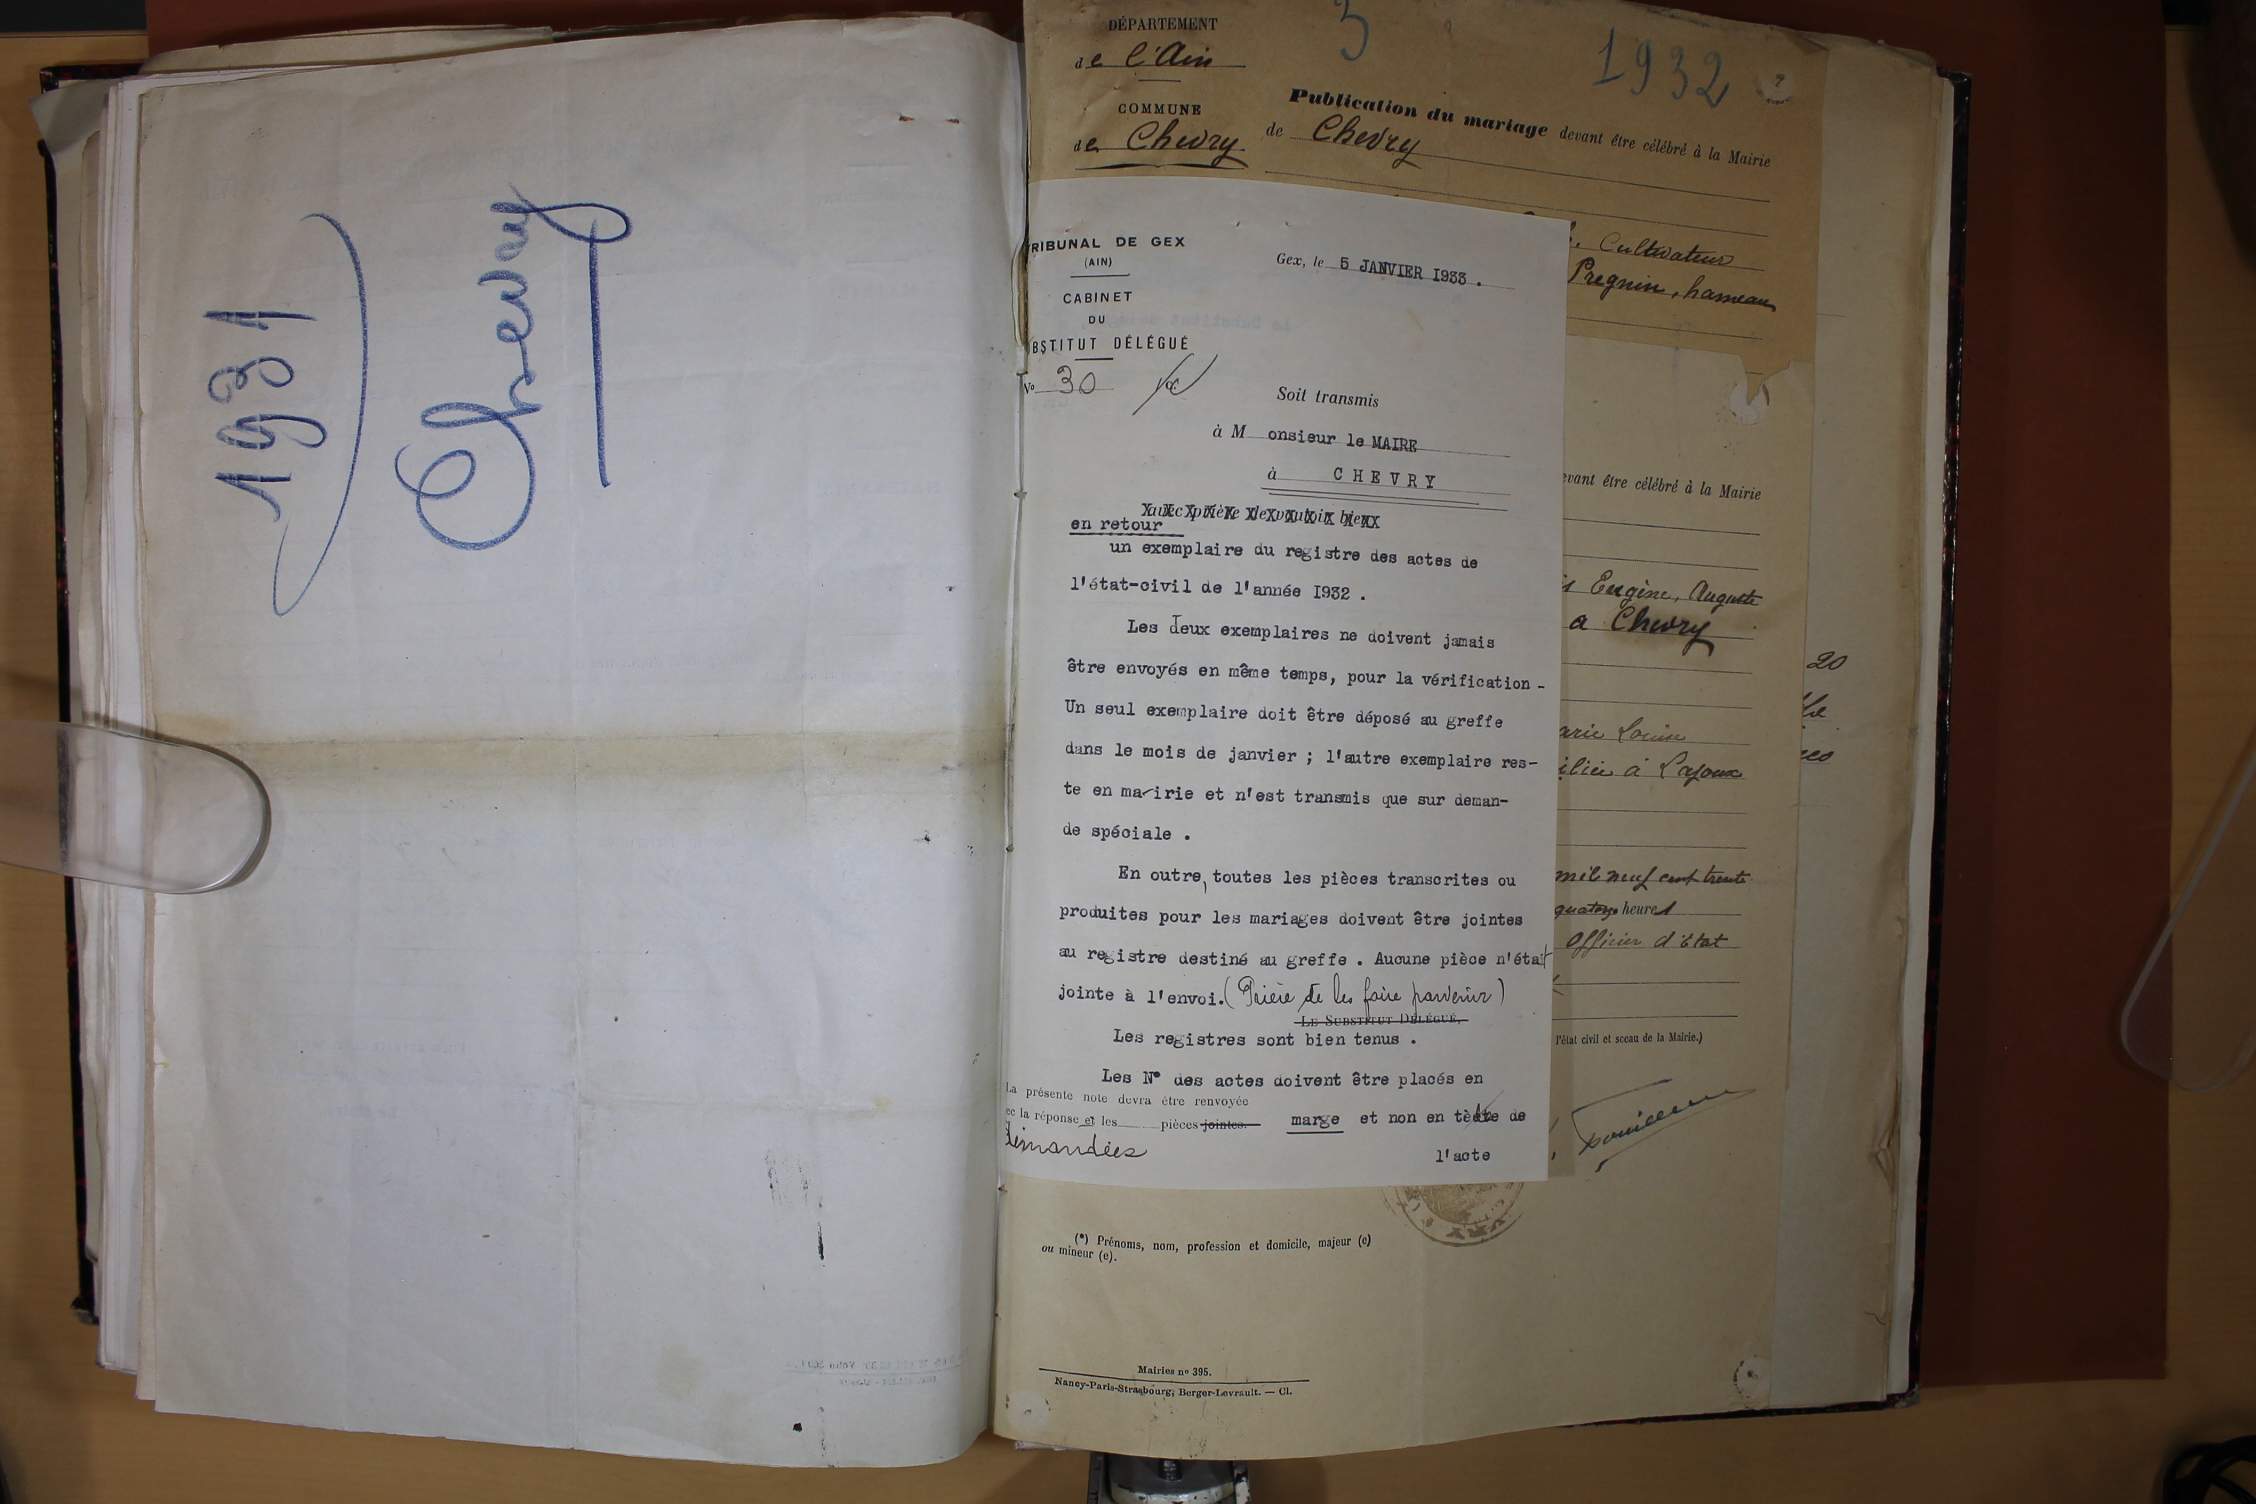 1931
Chevry
DÉPARTEMENT
de l'Ain
3
1932
COMMUNE
de Chevry
Publication du mariage devant être célébré à la Mairie
de Chevry
Cultivateur
Pregnin, hameau
RIBUNAL DE GEX
(AIN)
Gex, le 5 JANVIER I933 .
CABINET
DU
BSTITUT DÉLÉGUÉ
No 30
Soit transmis
à M onsieur le MAIRE
à CHEVRY
avec prière de vouloir bien
en retour
un exemplaire du registre des actes de
l'état-civil de l'année I932 .
Les deux exemplaires ne doivent jamais
être envoyés en même temps, pour la vérification -
Un seul exemplaire doit être déposé au greffe
dans le mois de janvier ; l'autre exemplaire res-
te en mairie et n'est transmis que sur deman-
de spéciale .
En outre, toutes les pièces transcrites ou
produites pour les mariages doivent être jointes
au registre destiné au greffe . Aucune pièce n'était
jointe à l'envoi. (Prière de les faire parvenir)
LE SUBSTITUT DÉLÉGUÉ,
Les registres sont bien tenus .
Les N° des actes doivent être placés en
La présente note devra être renvoyée
ec la réponse et les pièces jointes.
demandées
marge et non en tète de
l'acte
evant être célébré à la Mairie
is Eugène, Auguste
a Chevry
arie Louise
iliée à Lajoux
mil neuf cent trente
quatorze heures
Officier d'État
l'état civil et sceau de la Mairie.)
20
(*) Prénoms, nom, profession et domicile, majeur (e)
ou mineur (e).
Mairies no 395.
Nancy-Paris-Strasbourg, Berger-Levrault. — Cl.